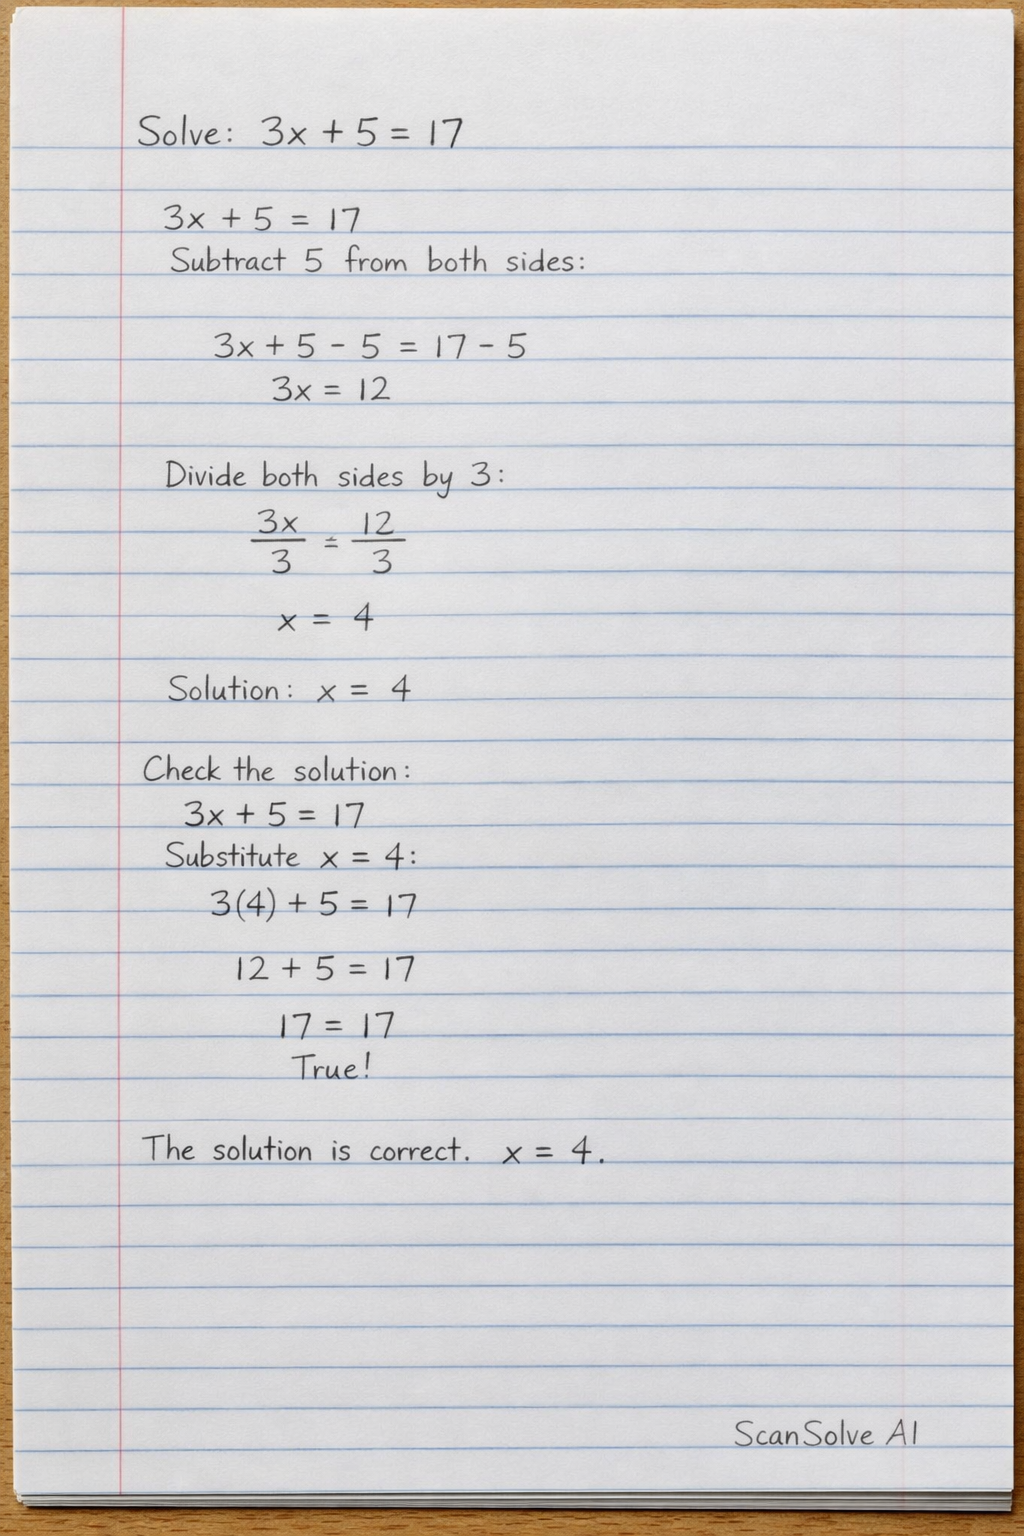 Solve: 3x + 5 = 17
3x + 5 = 17
Subtract 5 from both sides:
3x + 5 - 5 = 17 - 5
3x = 12
Divide both sides by 3:
3x/3 = 12/3
x = 4
Solution: x = 4
Check the solution:
3x + 5 = 17
Substitute x = 4:
3(4) + 5 = 17
12 + 5 = 17
17 = 17
True!
The solution is correct. x = 4.
ScanSolve AI